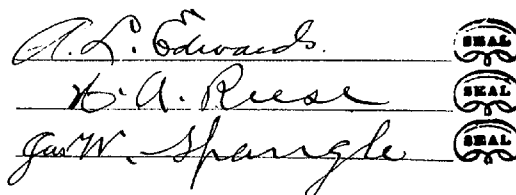 A. L. Edwards. SEAL
H. A. Reese SEAL
Jas W. Spangle SEAL